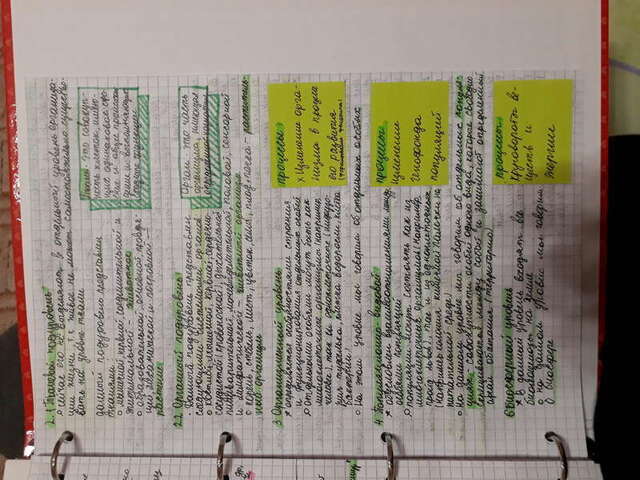 2.1 Тканевой подуровень
сейчас его не выделяют в отдельный уровень организа-
ции жизни, т.к живое не может самостоятельно существо-
вать на уровне ткани
Ткань - это совокуп-
ность клеток, имею-
щих одинаковое стро-
ение и общее происхож-
дение и выполняющих
сходные функции
данный подуровень представлен
тканями:
мышечной, нервной, соединительной и
эпителиальной - животное
образовательной, основной, проводя-
щей, механической и покровной -
растение
2.2 Органный подуровень
Данный подуровень представлен
следующими системами органов
Орган - это часть
организма, имеющая
определенное
костной, мышечной, нервной, сердечно
сосудистой (кровеносной), дыхательной
пищеварительной, мочевыделительной, половой, сенсорной
и лимфатической - животный организм
корень, стебель, лист, цветок, семя, плод, почка - раститель-
ный организм
3 Организменный уровень
определяется особенностями строения
и функционирования отдельных особей
отдельными особями могут быть как
многоклеточные организмы (например
человек), так и одноклеточные (инфузо-
рия туфелька, клетка водоросли, клетка
бактерии)
На этом уровне мы говорим об отдельных особях
процессы
х Изменение орга-
низма в процессе
его развития
4. Популяционно-видовой
обусловлен взаимоотношениями между
особями популяций
популяции могут состоять как из
многоклеточных организмов (например
прайд львов), так и из одноклеточных
(например колония кишечной палочки на
питательной среде)
на данном уровне мы говорим об отдельных популя-
циях - совокупности особей одного вида, которые свободно
скрещиваются между собой и занимают определенный
ареал обитания (территорию)
процессы
изменение
генофонда
популяций
6 Биосферный уровень
в данный уровень входят все
биогеоценозы на Земле
на данном уровне мы говорим
о биосфере
процессы
Круговорот ве-
ществ и
энергии